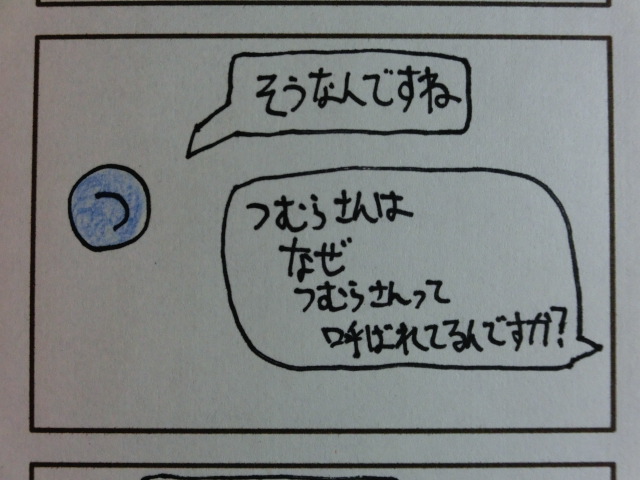 そうなんですね
つ
つむらさんは
なぜ
つむらさんって
呼ばれてるんですか?